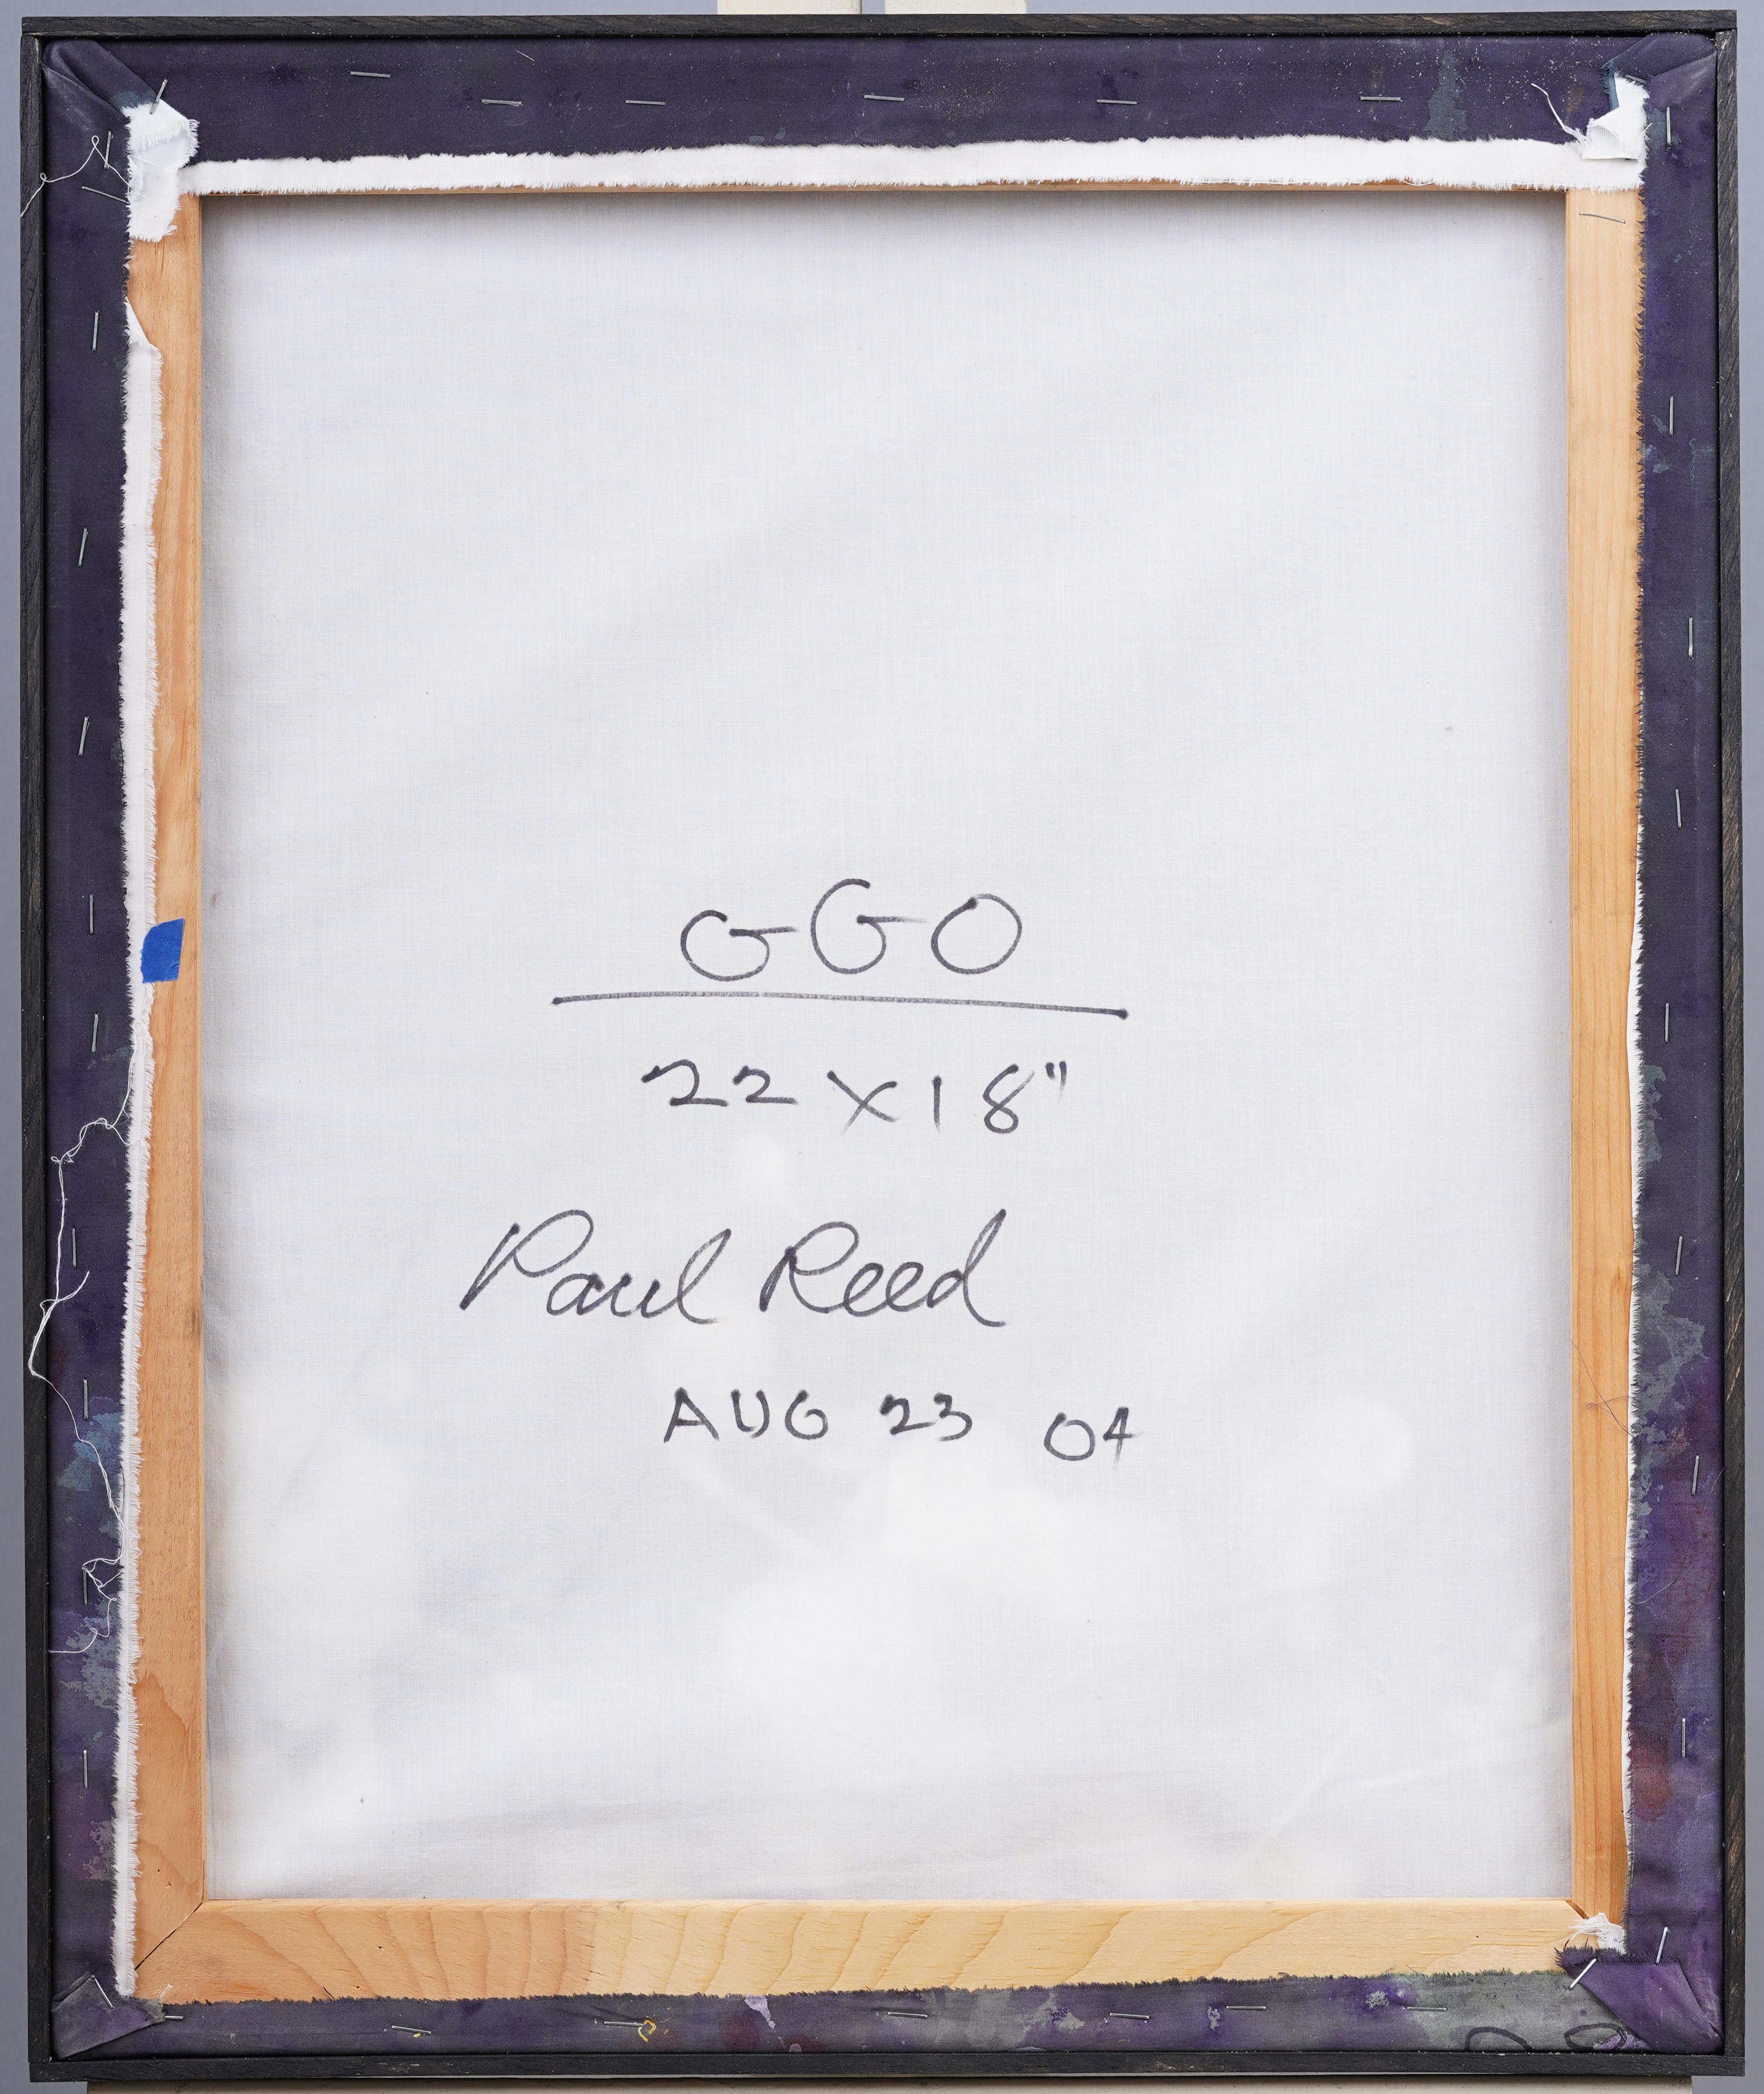 GGO
22 X 18"
Paul Reed
AUG 23 04